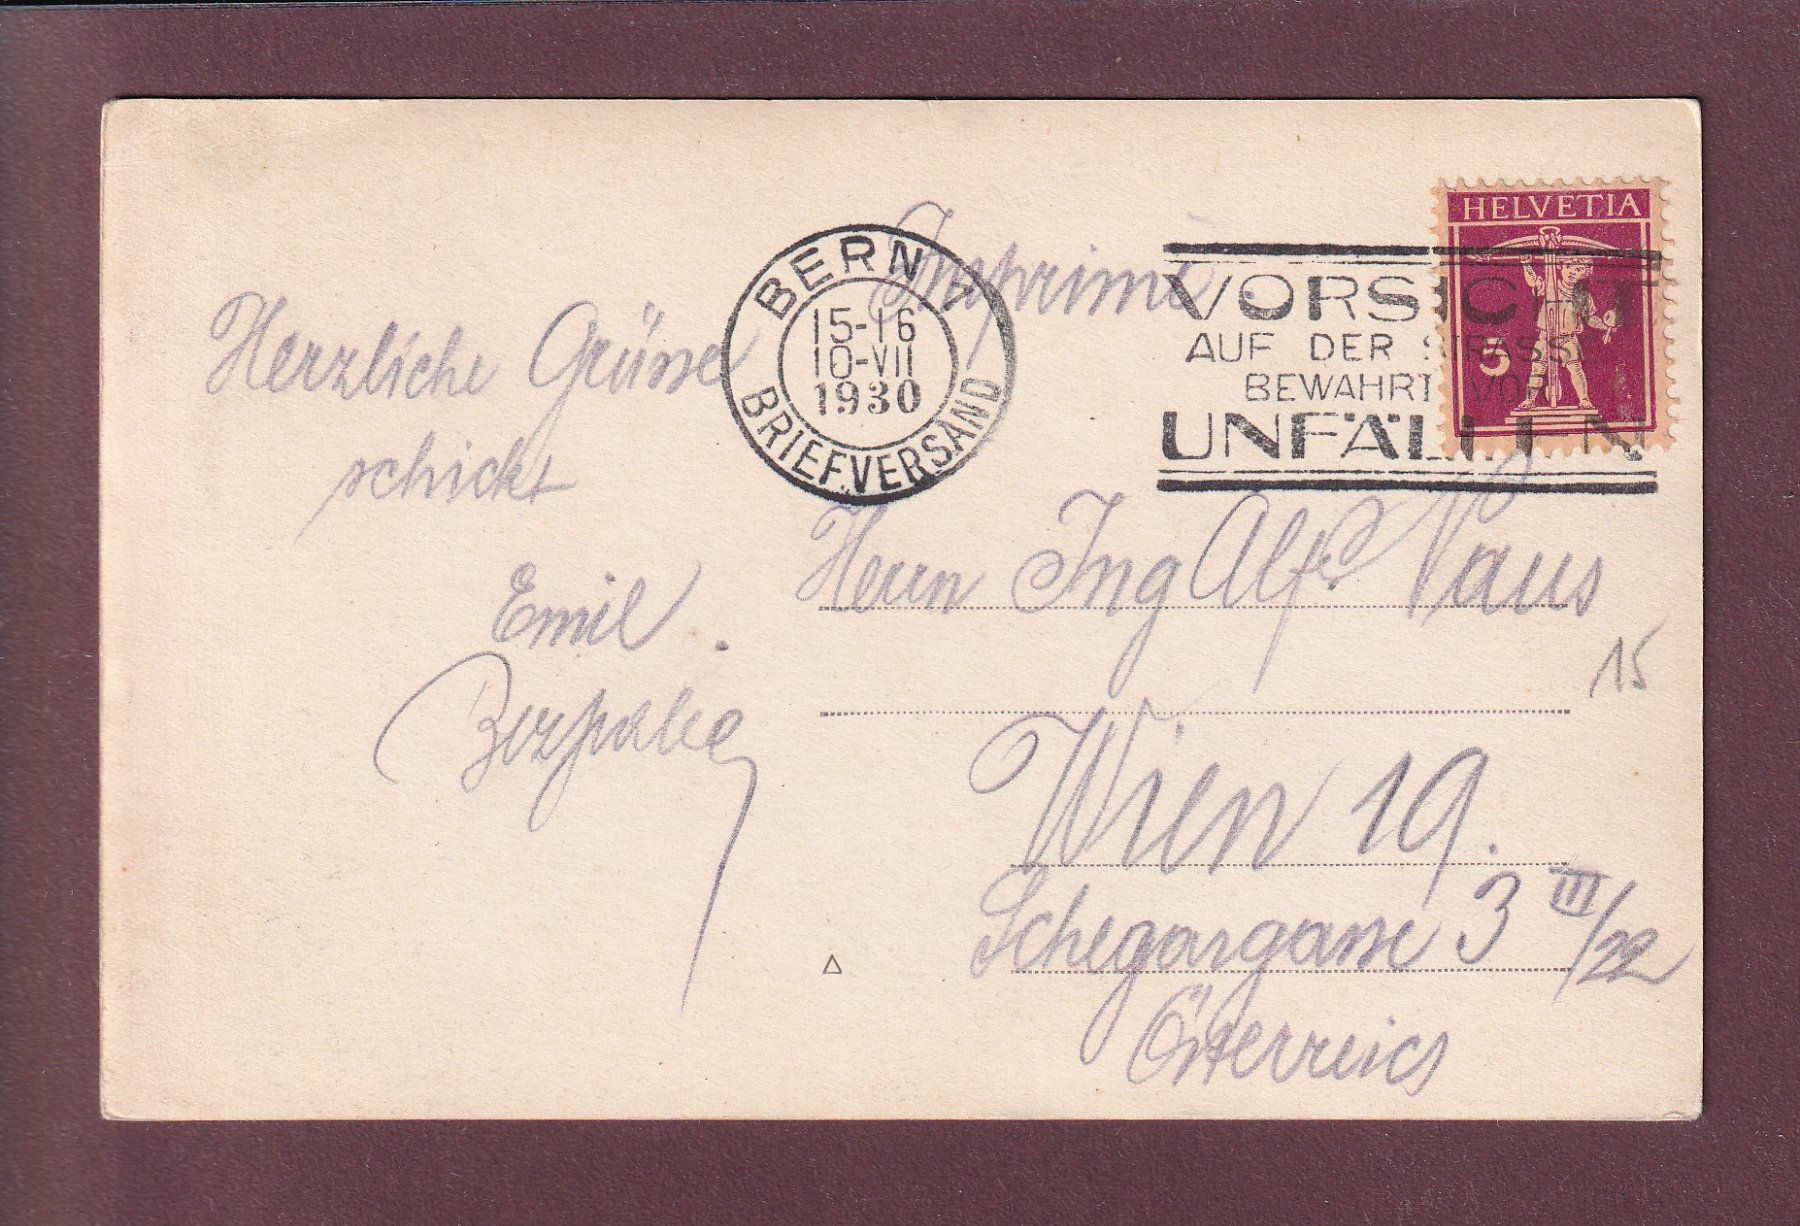 Imprimé.
HELVETIA
5
BERN 1
15-16
10-VII
1930
BRIEFVERSAND
VORSICHT
AUF DER STRASSE
BEWAHRT VOR
UNFÄLLEN
Herzliche Grüsse
schickt
Emil
Herrn Ing Alfr.
15
Wien 19.
Schegargasse 3 III/22
Österreich